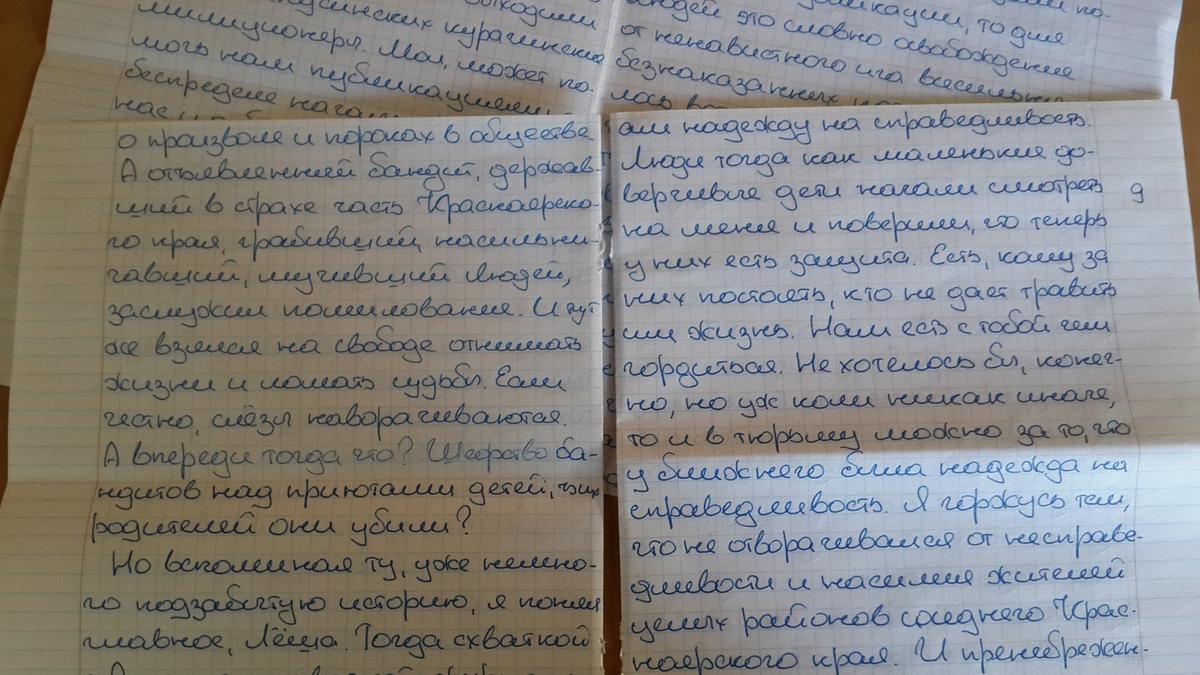 выходили
курагинские
милиционеры. Мои, может по-
мочь нам публикациями,
беспределе
то для
людей это словно освобождение
от ненавистного ига всесильных
безнаказанных
лось
о произволе и пороках в обществе.
А отъявленный бандит, державш-
ший в страхе часть Красноярско-
го края, грабивший, насильни-
чавший, мучивший людей,
заслужил помилования. И тут
же взялся на свободе отнимать
жизни и ломать судьбы. Если
честно, слёзы наворачиваются.
А впереди тогда что? Шефство ба-
ндитов над приютами детей, чьих
родителей они убили?
Но вспоминая ту, уже немно-
го подзабытую историю, я понял
главное, Лёша. Тогда схваткой
9
али надежду на справедливость.
Люди тогда как маленькие до-
верчивые дети начали смотреть
на меня и поверили, что теперь
у них есть защита. Есть, кому за
них постоять, кто не дает травить
им жизнь. Нам есть с тобой чем
гордиться. Не хотелось бы, конеч-
но, но уж коли никак иначе,
то и в тюрьму можно за то, что
у ближнего была надежда на
справедливость. Я горжусь тем,
что не отворачивался от неспра­ве-
дливости и насилия жителей
целых районов среднего Крас-
ноярского края. И пренебрежен-